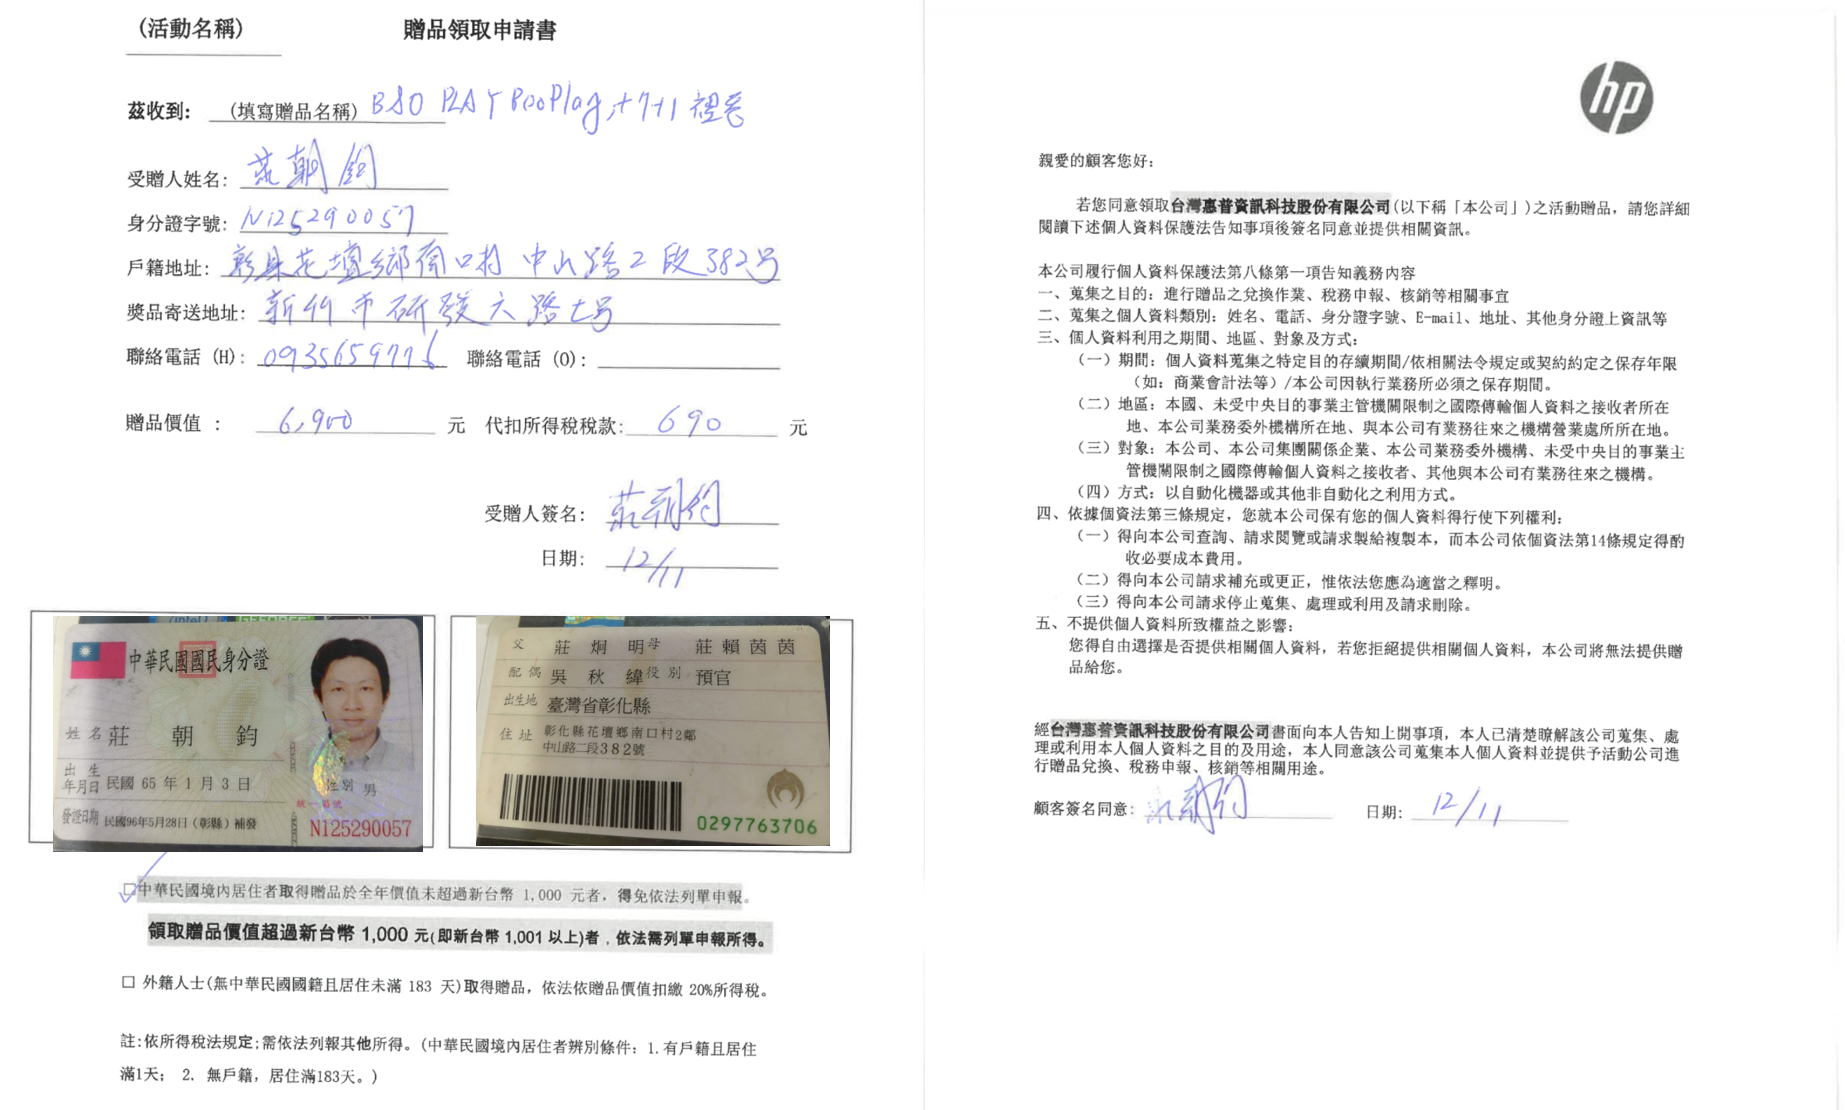 (活動名稱)
贈品領取申請書
茲收到: (填寫贈品名稱) B&O PLAY BeoPlay, +7+1 禮卷
受贈人姓名: 莊朝鈞
身分證字號: N125290057
戶籍地址: 彰縣花壇鄉南口村中山路2段382號
獎品寄送地址: 新竹市研發六路七號
聯絡電話 (H): 0935659776 聯絡電話 (O):
贈品價值 : 6,900 元 代扣所得稅稅款: 690 元
受贈人簽名: 莊朝鈞
日期: 12/11
中華民國國民身分證
姓名 莊 朝 鈞
出生年月日 民國 65 年 1 月 3 日
性別 男
發證日期 民國96年5月28日 (彰縣) 補發
統一編號
N125290057
父 莊 炯 明 母 莊 賴 茵 茵
配偶 吳 秋 緯 役別 預官
出生地 臺灣省彰化縣
住址 彰化縣花壇鄉南口村2鄰
中山路二段382號
0297763706
□中華民國境內居住者取得贈品於全年價值未超過新台幣 1,000 元者, 得免依法列單申報。
領取贈品價值超過新台幣 1,000 元(即新台幣 1,001 以上)者, 依法需列單申報所得。
□ 外籍人士(無中華民國國籍且居住未滿 183 天)取得贈品, 依法依贈品價值扣繳 20%所得稅。
註:依所得稅法規定;需依法列報其他所得。(中華民國境內居住者辨別條件: 1.有戶籍且居住
滿1天; 2. 無戶籍, 居住滿183天。)
hp
親愛的顧客您好:
若您同意領取台灣惠普資訊科技股份有限公司(以下稱「本公司」)之活動贈品, 請您詳細
閱讀下述個人資料保護法告知事項後簽名同意並提供相關資訊。
本公司履行個人資料保護法第八條第一項告知義務內容
一、蒐集之目的: 進行贈品之兌換作業、稅務申報、核銷等相關事宜
二、蒐集之個人資料類別: 姓名、電話、身分證字號、E-mail、地址、其他身分證上資訊等
三、個人資料利用之期間、地區、對象及方式:
(一) 期間: 個人資料蒐集之特定目的存續期間/依相關法令規定或契約約定之保存年限
(如: 商業會計法等) /本公司因執行業務所必須之保存期間。
(二) 地區: 本國、未受中央目的事業主管機關限制之國際傳輸個人資料之接收者所在
地、本公司業務委外機構所在地、與本公司有業務往來之機構營業處所所在地。
(三) 對象: 本公司、本公司集團關係企業、本公司業務委外機構、未受中央目的事業主
管機關限制之國際傳輸個人資料之接收者、其他與本公司有業務往來之機構。
(四) 方式: 以自動化機器或其他非自動化之利用方式。
四、依據個資法第三條規定, 您就本公司保有您的個人資料得行使下列權利:
(一) 得向本公司查詢、請求閱覽或請求製給複製本, 而本公司依個資法第14條規定得酌
收必要成本費用。
(二) 得向本公司請求補充或更正, 惟依法您應為適當之釋明。
(三) 得向本公司請求停止蒐集、處理或利用及請求刪除。
五、不提供個人資料所致權益之影響:
您得自由選擇是否提供相關個人資料, 若您拒絕提供相關個人資料, 本公司將無法提供贈
品給您。
經台灣惠普資訊科技股份有限公司書面向本人告知上開事項, 本人已清楚瞭解該公司蒐集、處
理或利用本人個人資料之目的及用途, 本人同意該公司蒐集本人個人資料並提供予活動公司進
行贈品兌換、稅務申報、核銷等相關用途。
顧客簽名同意: 莊朝鈞 日期: 12/11